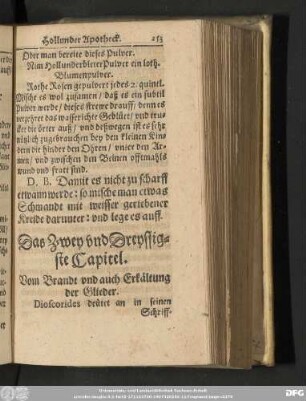 Hollunder Apotheck. 253
Oder man bereite dieses Pulver.
Nim Hollunderbleter Pulver ein loth,
Blumenpulver.
Rothe Rosen gepulvert jedes 2. quintl.
Mische es wol zusamen / daß es ein subtil
Pulver werde / dieses strewe drauff / denn es
verzehret das wässerichte Geblüet / und truck-
ket die örter auß / und deßwegen ist es sehr
nützlich zugebrauchen bey den kleinen Kin-
dern die hinder den Ohren / unter den Ar-
men / und zwischen den Beinen offtmahls
wund und fratt sind.
D. B. Damit es nicht zu scharff
etwann werde: so mische man etwas
Schmande mit weisser geriebener
Kreide darunter: und lege es auff.
Das Zwey und Dreyssig-
ste Capitel.
Vom Brandt und auch Erkältung
der Glieder.
Dioscorides deütet an in seinen
Schriff-
DFG